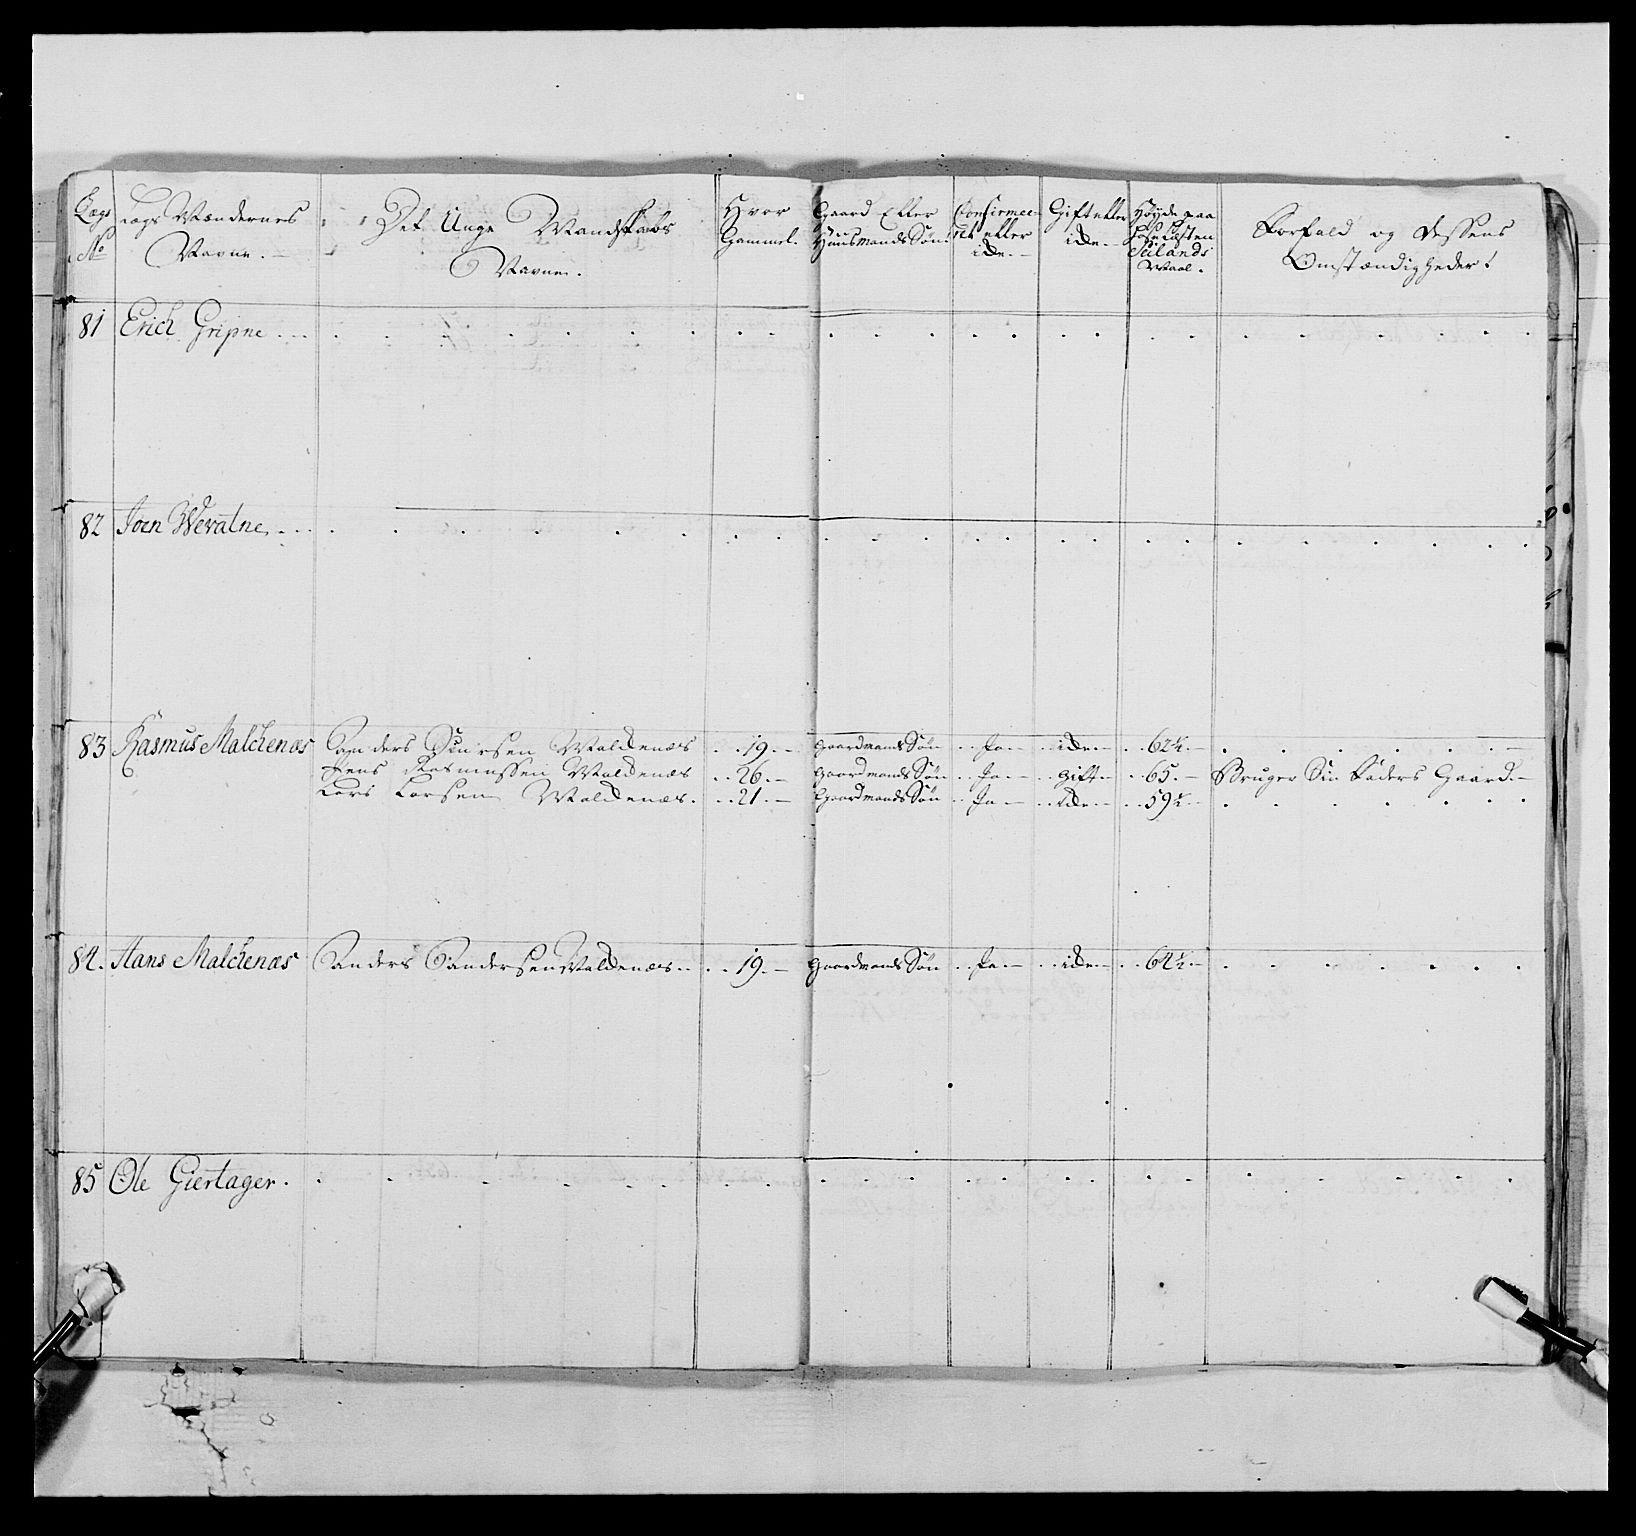 Lægs No | Lægs Mændernes Navne. | Det Unge Mandskabs Navne. | Hvor Gammel. | Gaard Eller Huusmands Søn. | Confirmeret eller icke. | Gift eller icke. | Høyde paa Sælands Maal. | Forfald og dessens Omstændigheder
81 Erich Gripne
82 Joen Weralne
83 Rasmus Malchenæs | Anders Malchenæs | 19. | Gaardmands Søn | Ja | icke | 62½
Jens Rasmussen Malchenæs | 26. | Gaardmands Søn | Ja | gift | 65. | Bruger Sin Faders Gaard.
Lars Larsen Malchenæs. | 21. | Gaardmands Søn | Ja | icke | 59½
84. Hans Malchenæs | Anders Andersen Malchenæs | 19. | Gaardmands Søn | Ja | icke | 64½
85 Ole Giertager.